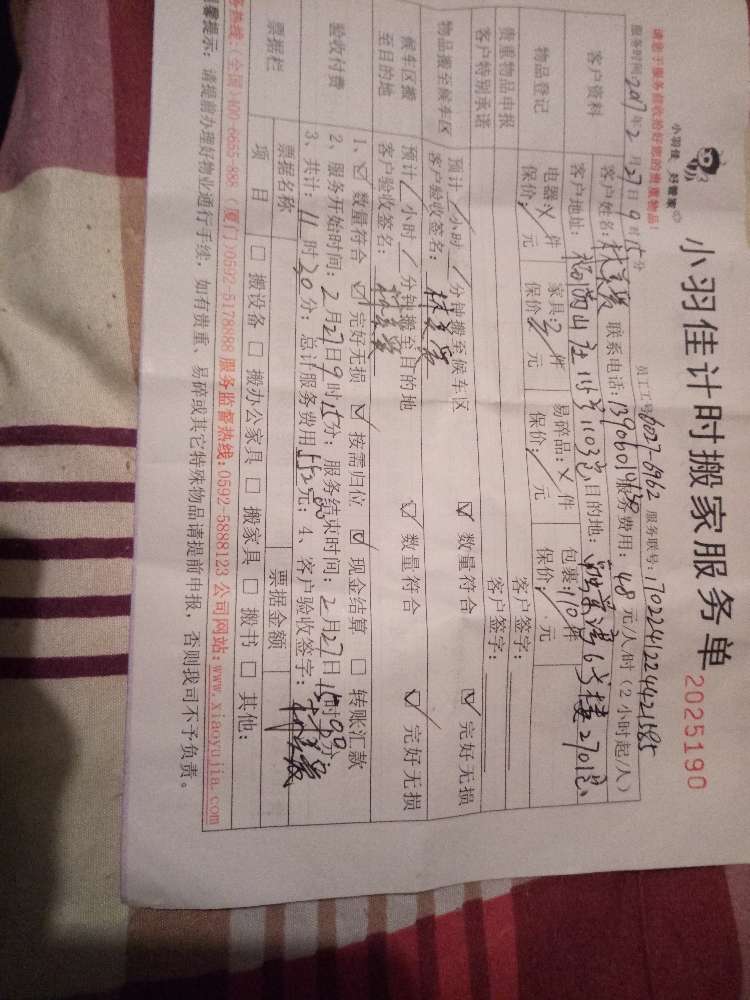 小羽佳 好管家
小羽佳计时搬家服务单 2025190
请您于服务前收拾好您的贵重物品！ 员工工号: 6027-6962 服务联号: 1702241224421585
服务时间: 2017年2月27日9时15分
客户资料 客户姓名: 林美爱 联系电话: 服务费用: 48元/人/时(2小时起/人)
客户地址: 社 103室 目的地: 楼2701室
物品登记 电器: X件 家具: 2件 易碎品: X件 包裹: 10件
保价: / 元 保价: / 元 保价: / 元 保价: 元
贵重物品申报 客户签字:
客户特别承诺 客户签字:
物品搬至候车区 预计 / 小时 / 分钟搬至候车区 ☑ 数量符合 ☑ 完好无损
客户验收签名: 林美爱
候车区搬至目的地 预计 / 小时 / 分钟搬至目的地 ☑ 数量符合 ☑ 完好无损
客户验收签名: 林美爱
验收付费 1、☑ 数量符合 ☑ 完好无损 ☑ 按需归位 ☑ 现金结算 □ 转账汇款
2、服务开始时间: 2月27日9时15分; 服务结束时间: 2月27日15时 分
3、共计: 11时30分; 总计服务费用552元; 4、客户验收签字: 林美爱
票据栏 票据名称 票据金额
项目 □ 搬设备 □ 搬办公家具 □ 搬家具 □ 搬书 □ 其他:
务热线: (全国)400-6665-888 (厦门)0592-5178888 服务监督热线: 0592-5888123 公司网站: www.xiaoyujia.com
馨提示: 请提前办理好物业通行手续, 如有贵重、易碎或其它特殊物品请提前申报, 否则我司不予负责。